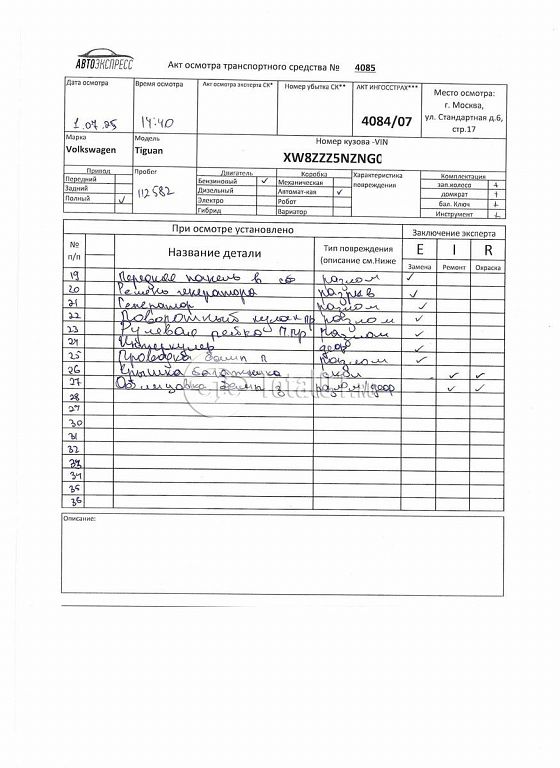 АВТОЭКСПРЕСС
Акт осмотра транспортного средства № 4085
Дата осмотра
1.07.25
Время осмотра
14:40
Акт осмотра эксперта СК*
Номер убытка СК**
АКТ ИНГОССТРАХ***
4084/07
Место осмотра:
г. Москва,
ул. Стандартная д.6,
стр.17
Марка
Volkswagen
Модель
Tiguan
Номер кузова -VIN
XW8ZZZ5NZNGC
Привод
Передний
Задний
Полный ✓
Пробег
112582
Двигатель
Бензиновый ✓
Дизельный
Электро
Гибрид
Коробка
Механическая
Автомат-кая ✓
Робот
Вариатор
Характеристика
повреждения
Комплектация
зап.колесо +
домкрат
бал. Ключ
Инструмент
При осмотре установлено
Заключение эксперта
№
п/п
Название детали
Тип повреждения
(описание см.Ниже
E I R
Замена Ремонт Окраска
19 Передняя панель в сб разлом ✓
20 Ремень генератора разрыв ✓
21 Генератор разлом ✓
22 Поворотный кулак пр разлом ✓
23 Рулевая рейка П.пр разлом ✓
24 Интеркулер деф ✓
25 Проводка бамп п разлом ✓
26 Крышка багажника ✓ ✓
27 Облицовка бамп з разлом/деф ✓ ✓
28
27
30
31
32
33
34
35
36
Описание: